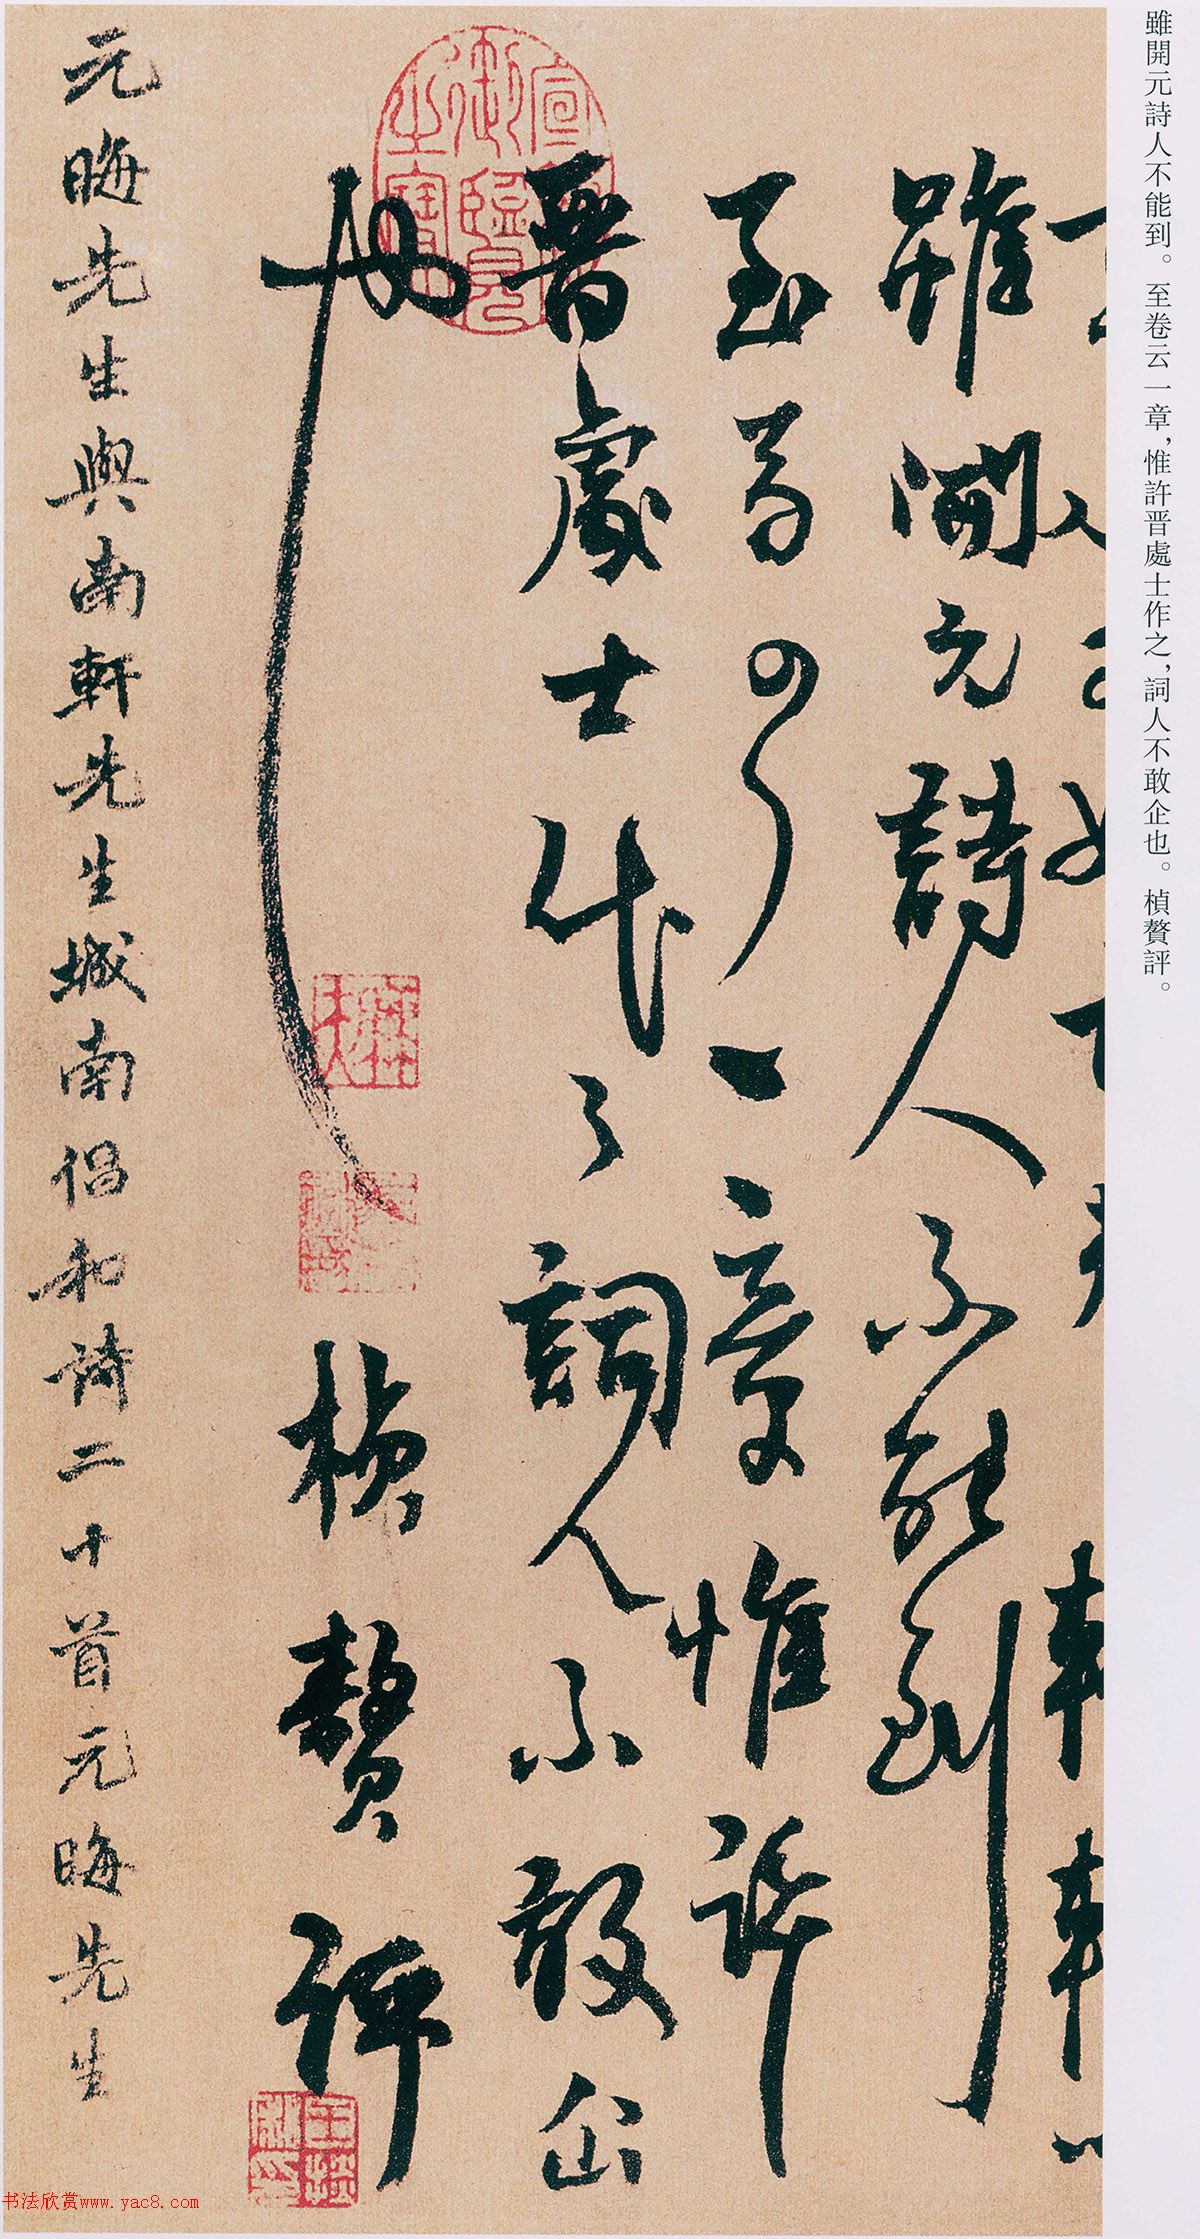 雖開元詩人不能到。至卷云一章，惟許晋處士作之，詞人不敢企也。楨贅評。
雖開元詩人不能到
至卷云一章惟許
晉處士作之詞人不敢企
也
楨贅評
元晦先生與南軒先生城南倡和詩二十首元晦先生
宣統御覽之寶
书法欣赏www.yac8.com